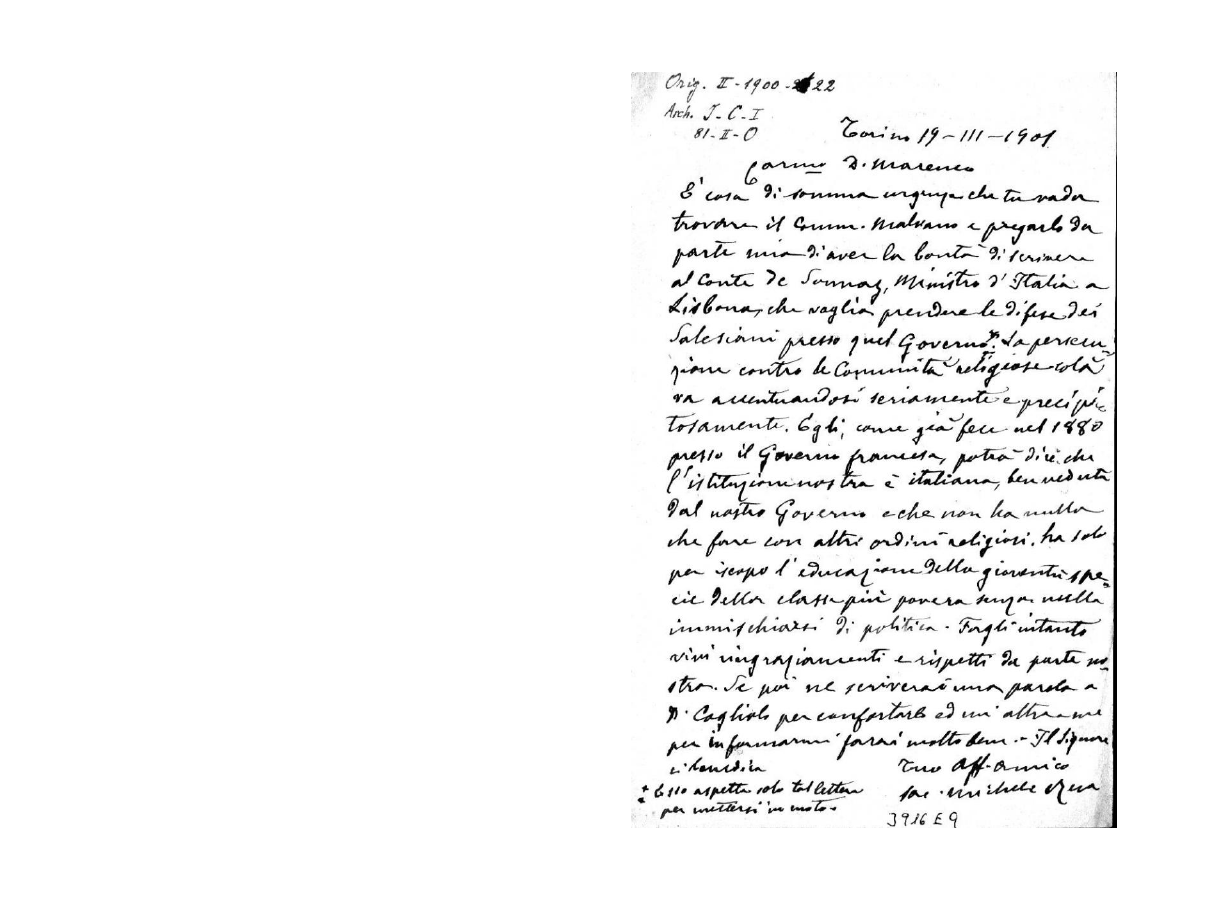 Orig. II-1900-2122
Arch. I-C-I
81-II-O
Torino 19-III-1901
Carmo D. Marenco
È cosa di somma urgenza che tu vada
trovare il Comm. Malvano e pregarlo da
parte mia di aver la bontà di scrivere
al Conte de Sonnaz, Ministro d'Italia a
Lisbona, che voglia prendere le difese dei
Salesiani presso quel Governo*. La persecu-
zione contro le Comunità religiose colà
va accentuandosi seriamente e precipi-
tosamente. Egli, come già fece nel 1880
presso il Governo francese, potrà dire che
l'istituzione nostra è italiana, ben veduta
dal nostro Governo e che non ha nulla
che fare con altri ordini religiosi, ha solo
per iscopo l'educazione della gioventù spe-
cie della classe più povera senza nulla
immischiarsi di politica. Fagli intanto
vivi ringraziamenti e rispetti da parte no-
stra. Se poi ne scriverai una parola a
D. Cogliolo per confortarlo ed un'altra a me
per informarmi farai molto bene. - Il Signore
ci benedica
Tuo Aff. amico
Sac. Michele Rua
* Esso aspetta solo tal lettera
per mettersi in moto.
3916 E 9